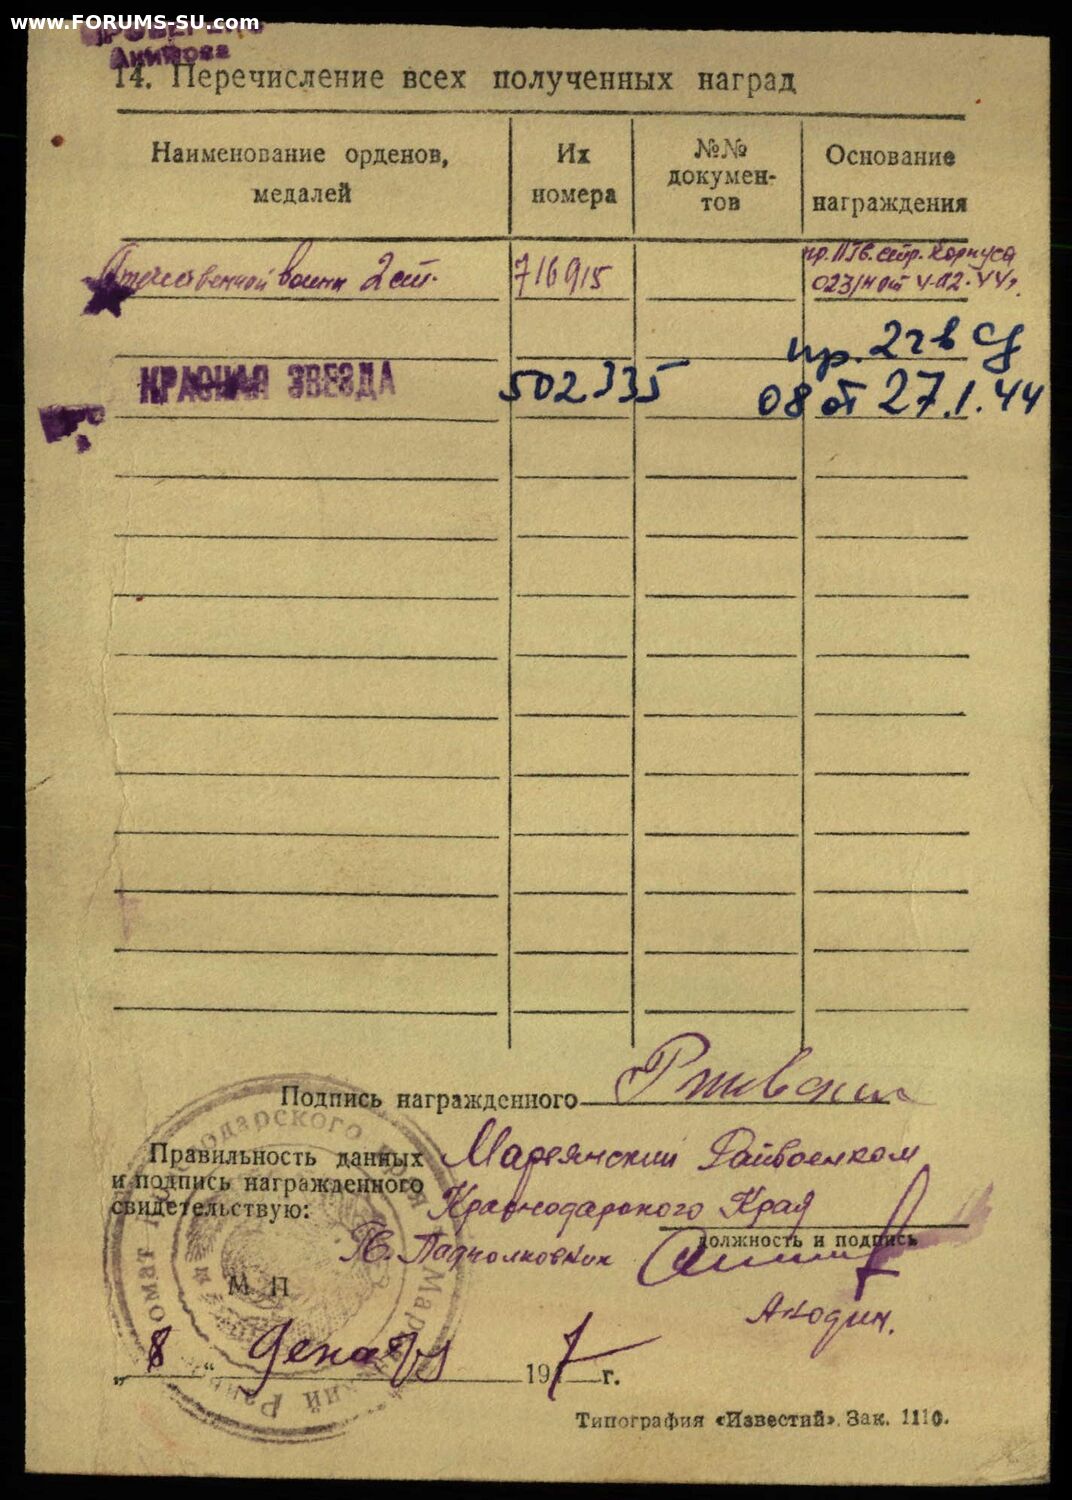 www.FORUMS-SU.com
Акимова
14. Перечисление всех полученных наград
Наименование орденов, медалей
Их номера
№№ докумен-тов
Основание награждения
Отечественной войны 2 ст. 716915 пр. 11 Гв. стр. Корпуса
023/н от 4.02.44г.
КРАСНАЯ ЗВЕЗДА 502335 пр. 2 гв сд
08 от 27.1.44
Подпись награжденного
Правильность данных Марьянский Райвоенком
и подпись награжденного
свидетельствую: Краснодарского Края
должность и подпись
Гв. Подполковник
М П
Акодин.
„8“ декабря 197 г.
Типография «Известий». Зак. 1110.